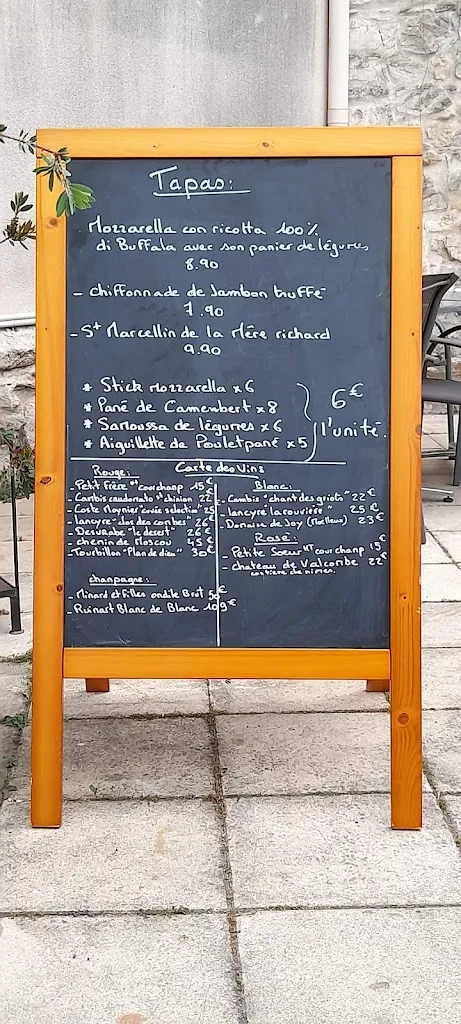 Tapas:
- Mozzarella con ricotta 100%
di Buffala avec son panier de légumes
8.90
- chiffonnade de Jambon truffé
7.90
- St Marcellin de la Mère richard
9.90
* Stick mozzarella x6
* Pané de Camembert x8
* Samoussa de légumes x6
* Aiguillette de Poulet pané x5
6€
l'unité.
Carte des Vins
Rouge:
- Petit Frère Mt cour champ 15€
- Cambis caudomato "chinian 22€
- Coste Moynier "cuvée selection" 25
- lancyre "clos des combes" 26€
- Desvabre "le desert" 26€
- chemin de Moscou 45€
- Tourbillon "Plan de dieu" 30€
champagne:
- Minard et Filles Brut
- Ruinart Blanc de Blanc 109€
Blanc:
- Cambis "chant des griots" 22€
- lancyre la rouvière 25€
- Domaine de Joy (Moelleux) 23€
Rosé:
- Petite Soeur Mt cour champ 15€
- chateau de Valcombe 22€
costière de nimes.